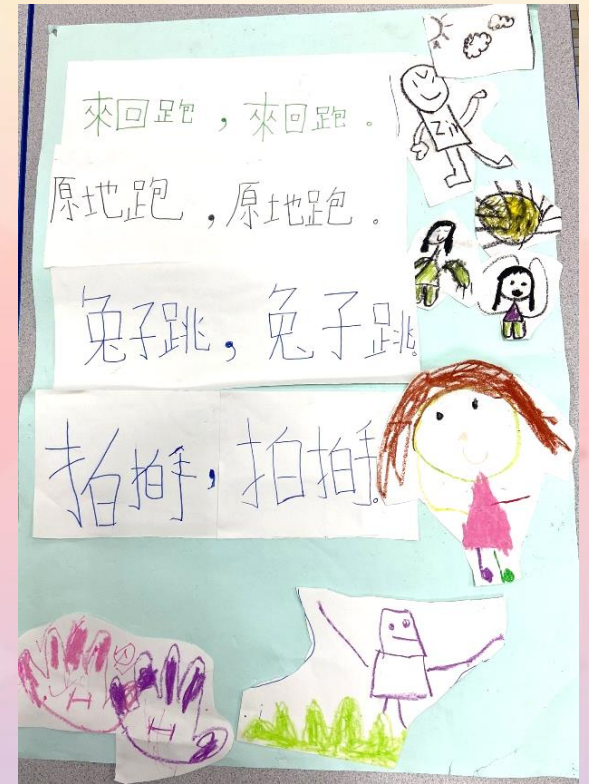 來回跑，來回跑。
原地跑，原地跑。
兔子跳，兔子跳。
拍拍手，拍拍手。